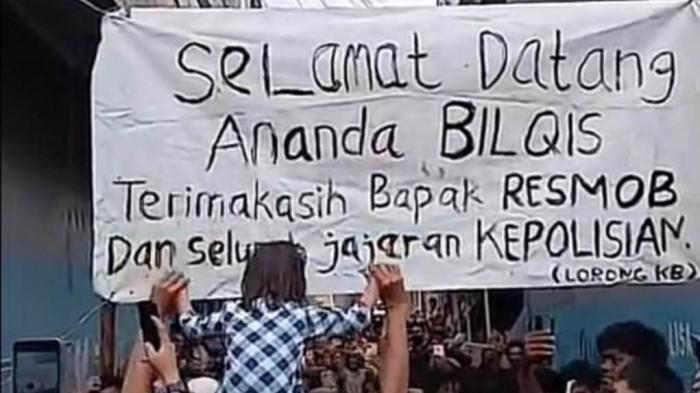 SeLamat Datang
Ananda BILQIS
Terimakasih Bapak RESMOB
Dan jajaran KEPOLISIAN.
(LORONG KB)